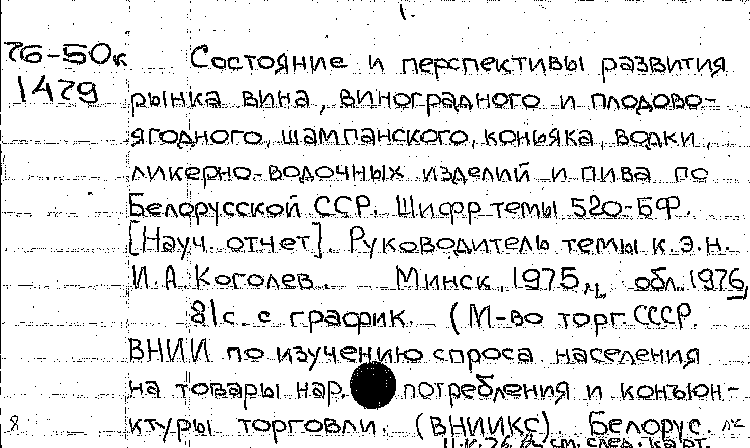 1.
76-50к Состояние и перспективы развития
1479 рынка вина, виноградного и плодово-
ягодного, шампанского, коньяка, водки,
ликерно-водочных изделий и пива по
Белорусской ССР. Шифр темы 520-БФ.
[Науч. отчет]. Руководитель темы к.э.н.
И.А. Коголев. Минск, 1975, обл. 1976,
81с. с график. (М-во торг. СССР.
ВНИИ по изучению спроса населения
на товары нар. потребления и конъюн-
ктуры торговли. (ВНИИКС). Белорус.
8 см. след. карт.